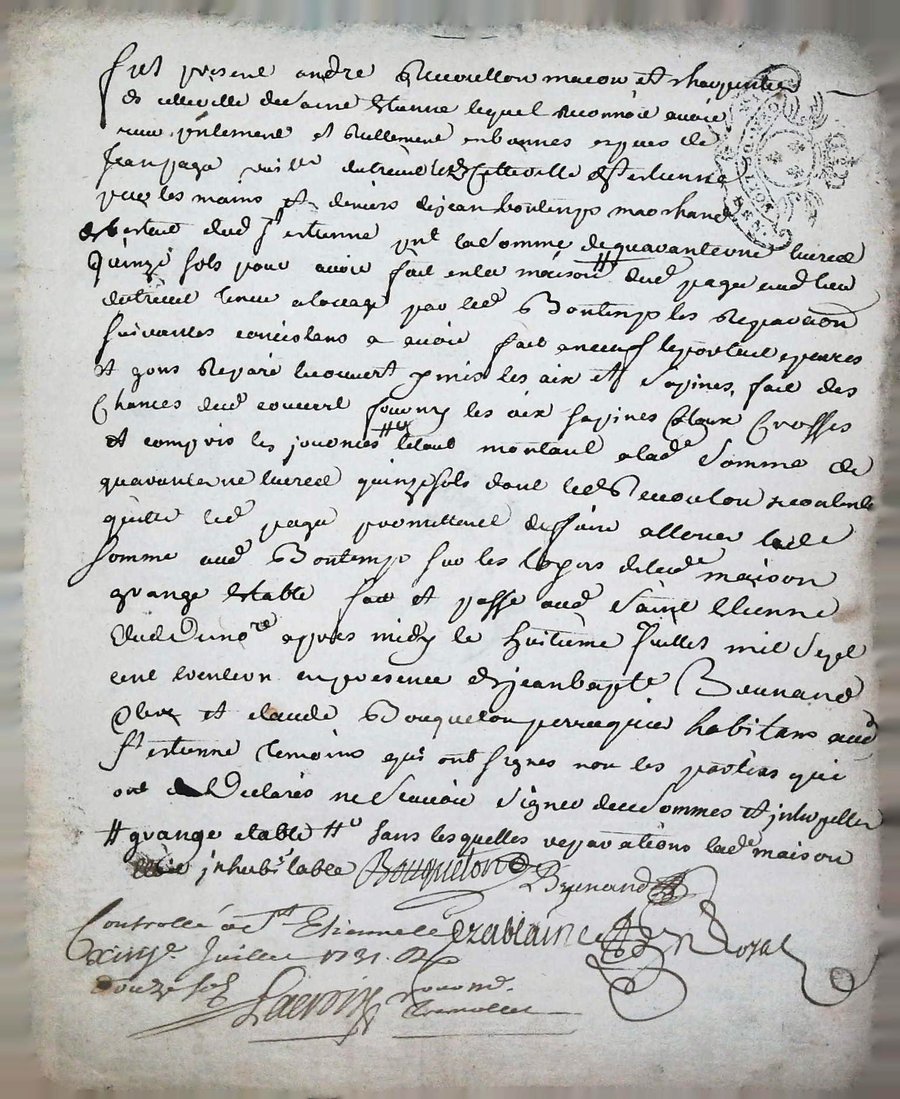 fut présent andré Recoullon macon et charpentier
de cette ville de saint Etienne lequel reconnoit avoir
receu présentement et réellement en bonnes espces de
jean page de cette ville de st estienne
par les mains et deniers de jean bontemps marchand
dud st estienne pnt la somme de quarante une livres
quinze sols pour avoir fait en la maison dud page aud lieu
tenue a locage par led Bontemps les reparaõns
suivantes consistens a avoir fait a neuf le portail
et gons reparé le couvert y mis les aix et sapines, fait des
chances dud couvert fourny les aix sapines cloux crosses
et compris les journées letout montant a lade somme de
quarante une livres quinze sols dont led Recoulon
quitte led page promettant de faire allouer lade
somme aud Bontemps sur les loyers de lade maison
grange estable fait et passé aud saint Etienne
apres midy le huitieme juillet mil sept
cent trente un en presence de jean bapte Brunand
clerc et claude Bouqueton perruquier habitans aud
st estienne temoins qui ont signés non les parties qui
ont declarés ne scavoir signer de ce sommes et interpellés
# grange etable # sans lesquelles reparations lade maison
inhabitable Bouqueton Brunand
Controllé a St Etienne le
juillet 1731. R
douze sols
Lacroix